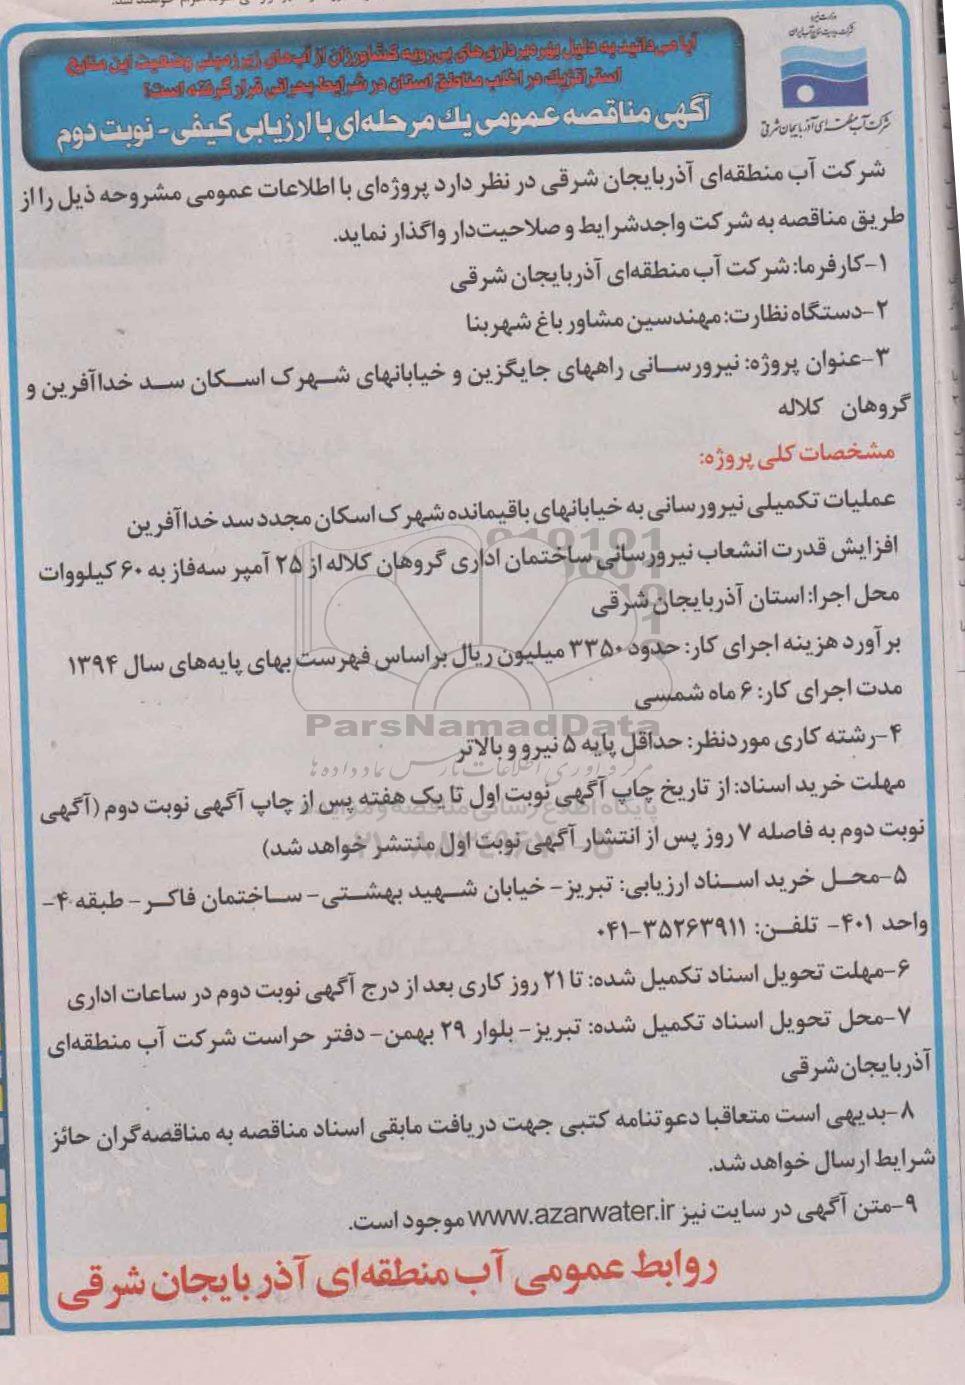 وزارت نیرو
شرکت مدیریت منابع آب ایران
شرکت آب منطقه‌ای آذربایجان شرقی
آیا می‌دانید به دلیل بهره‌برداری‌های بی‌رویه کشاورزان از آب‌های زیرزمینی وضعیت این منابع
استراتژیک در اغلب مناطق استان در شرایط بحرانی قرار گرفته است؟
آگهی مناقصه عمومی یک مرحله‌ای با ارزیابی کیفی - نوبت دوم
شرکت آب منطقه‌ای آذربایجان شرقی در نظر دارد پروژه‌ای با اطلاعات عمومی مشروحه ذیل را از
طریق مناقصه به شرکت واجدشرایط و صلاحیت‌دار واگذار نماید.
۱-کارفرما: شرکت آب منطقه‌ای آذربایجان شرقی
۲-دستگاه نظارت: مهندسین مشاور باغ شهربنا
۳-عنوان پروژه: نیرورسانی راههای جایگزین و خیابانهای شهرک اسکان سد خداآفرین و
گروهان کلاله
مشخصات کلی پروژه:
عملیات تکمیلی نیرورسانی به خیابانهای باقیمانده شهرک اسکان مجدد سد خداآفرین
افزایش قدرت انشعاب نیرورسانی ساختمان اداری گروهان کلاله از ۲۵ آمپر سه‌فاز به ۶۰ کیلووات
محل اجرا: استان آذربایجان شرقی
برآورد هزینه اجرای کار: حدود ۳۳۵۰ میلیون ریال براساس فهرست بهای پایه‌های سال ۱۳۹۴
مدت اجرای کار: ۶ ماه شمسی
ParsNamadData
۴-رشته کاری موردنظر: حداقل پایه ۵ نیرو و بالاتر
مرکز فرآوری اطلاعات پارس نماد داده ها
مهلت خرید اسناد: از تاریخ چاپ آگهی نوبت اول تا یک هفته پس از چاپ آگهی نوبت دوم (آگهی
نوبت دوم به فاصله ۷ روز پس از انتشار آگهی نوبت اول منتشر خواهد شد)
۵-محل خرید اسناد ارزیابی: تبریز- خیابان شهید بهشتی- ساختمان فاکر- طبقه ۴-
واحد ۴۰۱- تلفن: ۳۵۲۶۳۹۱۱-۰۴۱
۶-مهلت تحویل اسناد تکمیل شده: تا ۲۱ روز کاری بعد از درج آگهی نوبت دوم در ساعات اداری
۷-محل تحویل اسناد تکمیل شده: تبریز- بلوار ۲۹ بهمن- دفتر حراست شرکت آب منطقه‌ای
آذربایجان‌شرقی
۸-بدیهی است متعاقبا دعوتنامه کتبی جهت دریافت مابقی اسناد مناقصه به مناقصه‌گران حائز
شرایط ارسال خواهد شد.
۹-متن آگهی در سایت نیز www.azarwater.ir موجود است.
روابط عمومی آب منطقه‌ای آذربایجان شرقی